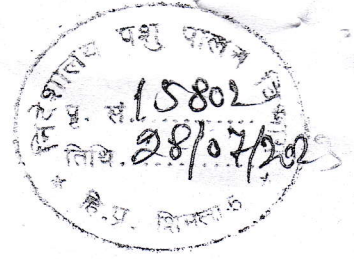 निदेशालय पशु पालन विभाग
पृ. सं. 15802
तिथि. 28/07/2023
* हि.प्र. शिमला-5 *